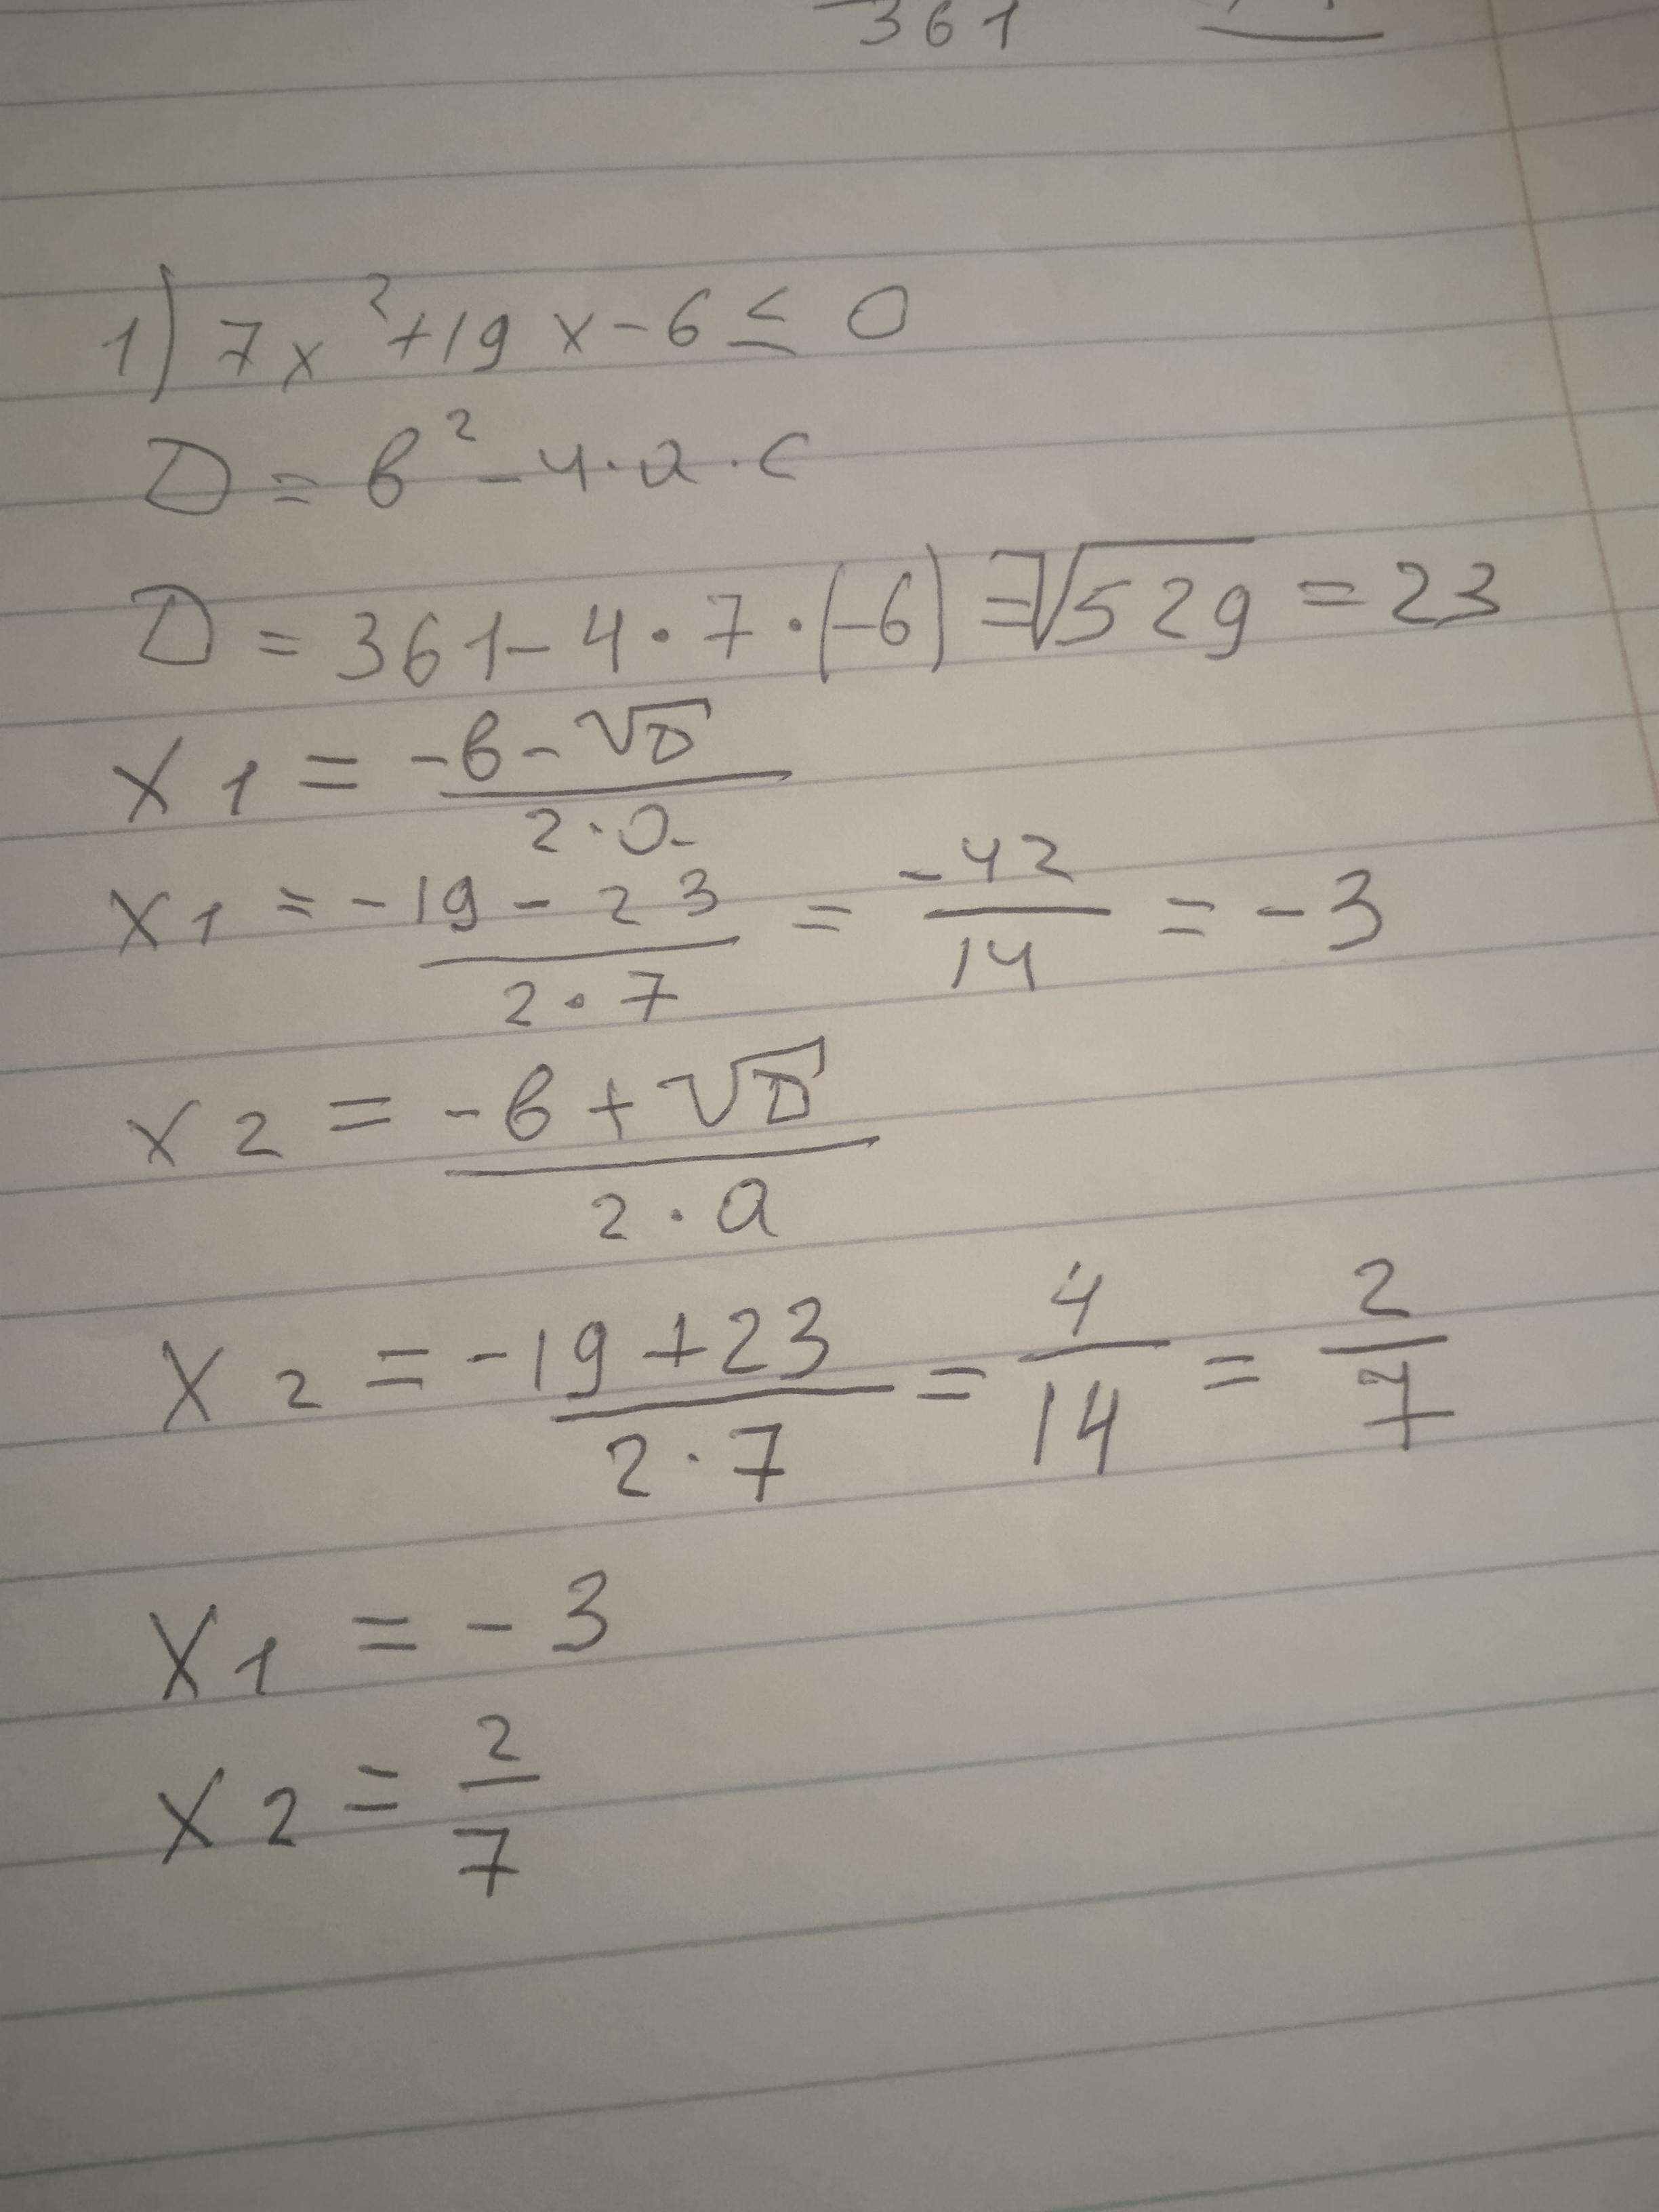 361
1) 7x²+19x-6≤0
D=в²-4·a·c
D=361-4·7·(-6)=√529=23
x1=(-в-√D)/(2·a)
x1=(-19-23)/(2·7)=-42/14=-3
x2=(-в+√D)/(2·a)
x2=(-19+23)/(2·7)=4/14=2/7
x1=-3
x2=2/7